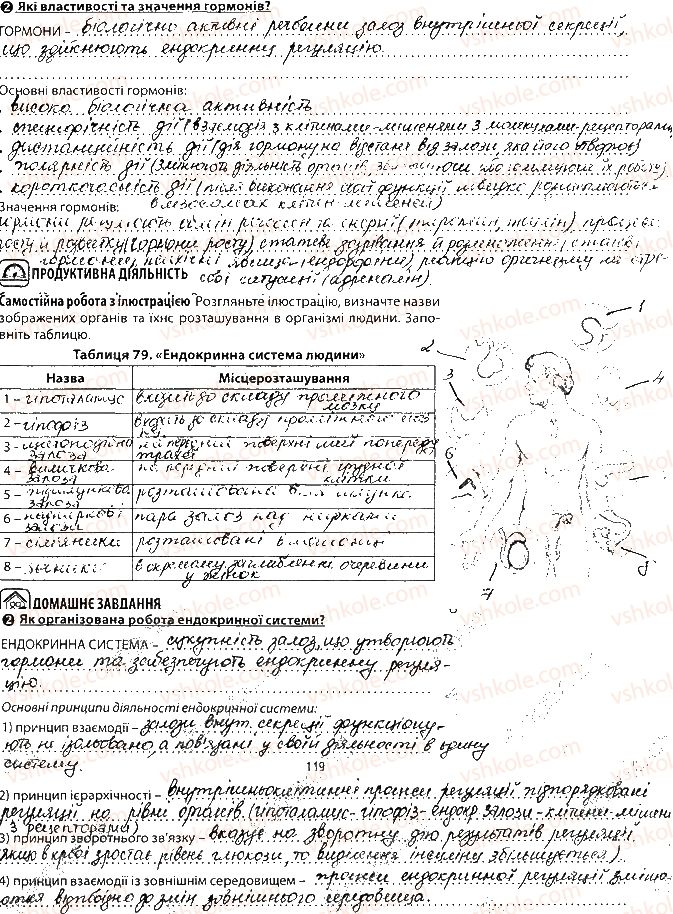 ❷ Які властивості та значення гормонів?
ГОРМОНИ – біологічно активні речовини залоз внутрішньої секреції,
що здійснюють ендокринну регуляцію.
Основні властивості гормонів:
висока біологічна активність
специфічність дії (взаємодія з клітинами-мішенями з молекулами-рецепторами)
дистанційність дії (дія гормону на відстані від залози, яка його утворює)
полярність дії (змінюють діяльність органів
короткочасність дії (після виконання своєї функції швидко
Значення гормонів: в лізосомах клітин-мішеней)
гормони регулюють обмін речовин та енергії
росту й розвитку (гормони росту) статеве дозрівання й розмноження (статеві
гормони), психічні явища реакцію організму на
ПРОДУКТИВНА ДІЯЛЬНІСТЬ
сові ситуації (адреналін).
Самостійна робота з ілюстрацією Розгляньте ілюстрацію, визначте назви
зображених органів та їхнє розташування в організмі людини. Запо-
вніть таблицю.
Таблиця 79. «Ендокринна система людини»
Назва Місцерозташування
1 – гіпоталамус входить до складу проміжного мозку
2 – гіпофіз входить до складу проміжного мозку
3 – щитоподібна залоза на передній поверхні шиї попереду трахеї
4 – вилочкова залоза на передній поверхні грудної клітки
5 – підшлункова залоза розташована біля шлунка
6 – надниркові залози пара залоз над нирками
7 – сім'яники розташовані в мошонці
8 – яєчники в окремому заглибленні очеревини у жінок
1
2
3
4
6
7
8
ДОМАШНЄ ЗАВДАННЯ
❷ Як організована робота ендокринної системи?
ЕНДОКРИННА СИСТЕМА – сукупність залоз, що утворюють
гормони та забезпечують ендокринну регуля-
цію.
Основні принципи діяльності ендокринної системи:
1) принцип взаємодії – залози внут. секреції функціону-
ють не ізольовано, а пов'язані у своїй діяльності в єдину
систему.
119
2) принцип ієрархічності – внутрішньоклітинні процеси регуляції підпорядковані
регуляції на рівні органів (гіпоталамус-гіпофіз-ендокр. залози-клітини-мішені
з рецепторами)
3) принцип зворотнього зв'язку – вказує на зворотну дію результатів регуляції
(якщо в крові зростає рівень глюкози, то виділення інсуліну збільшується)
4) принцип взаємодії із зовнішнім середовищем – процеси ендокринної регуляції зміню-
ються відповідно до змін зовнішнього середовища.
vshkole.com